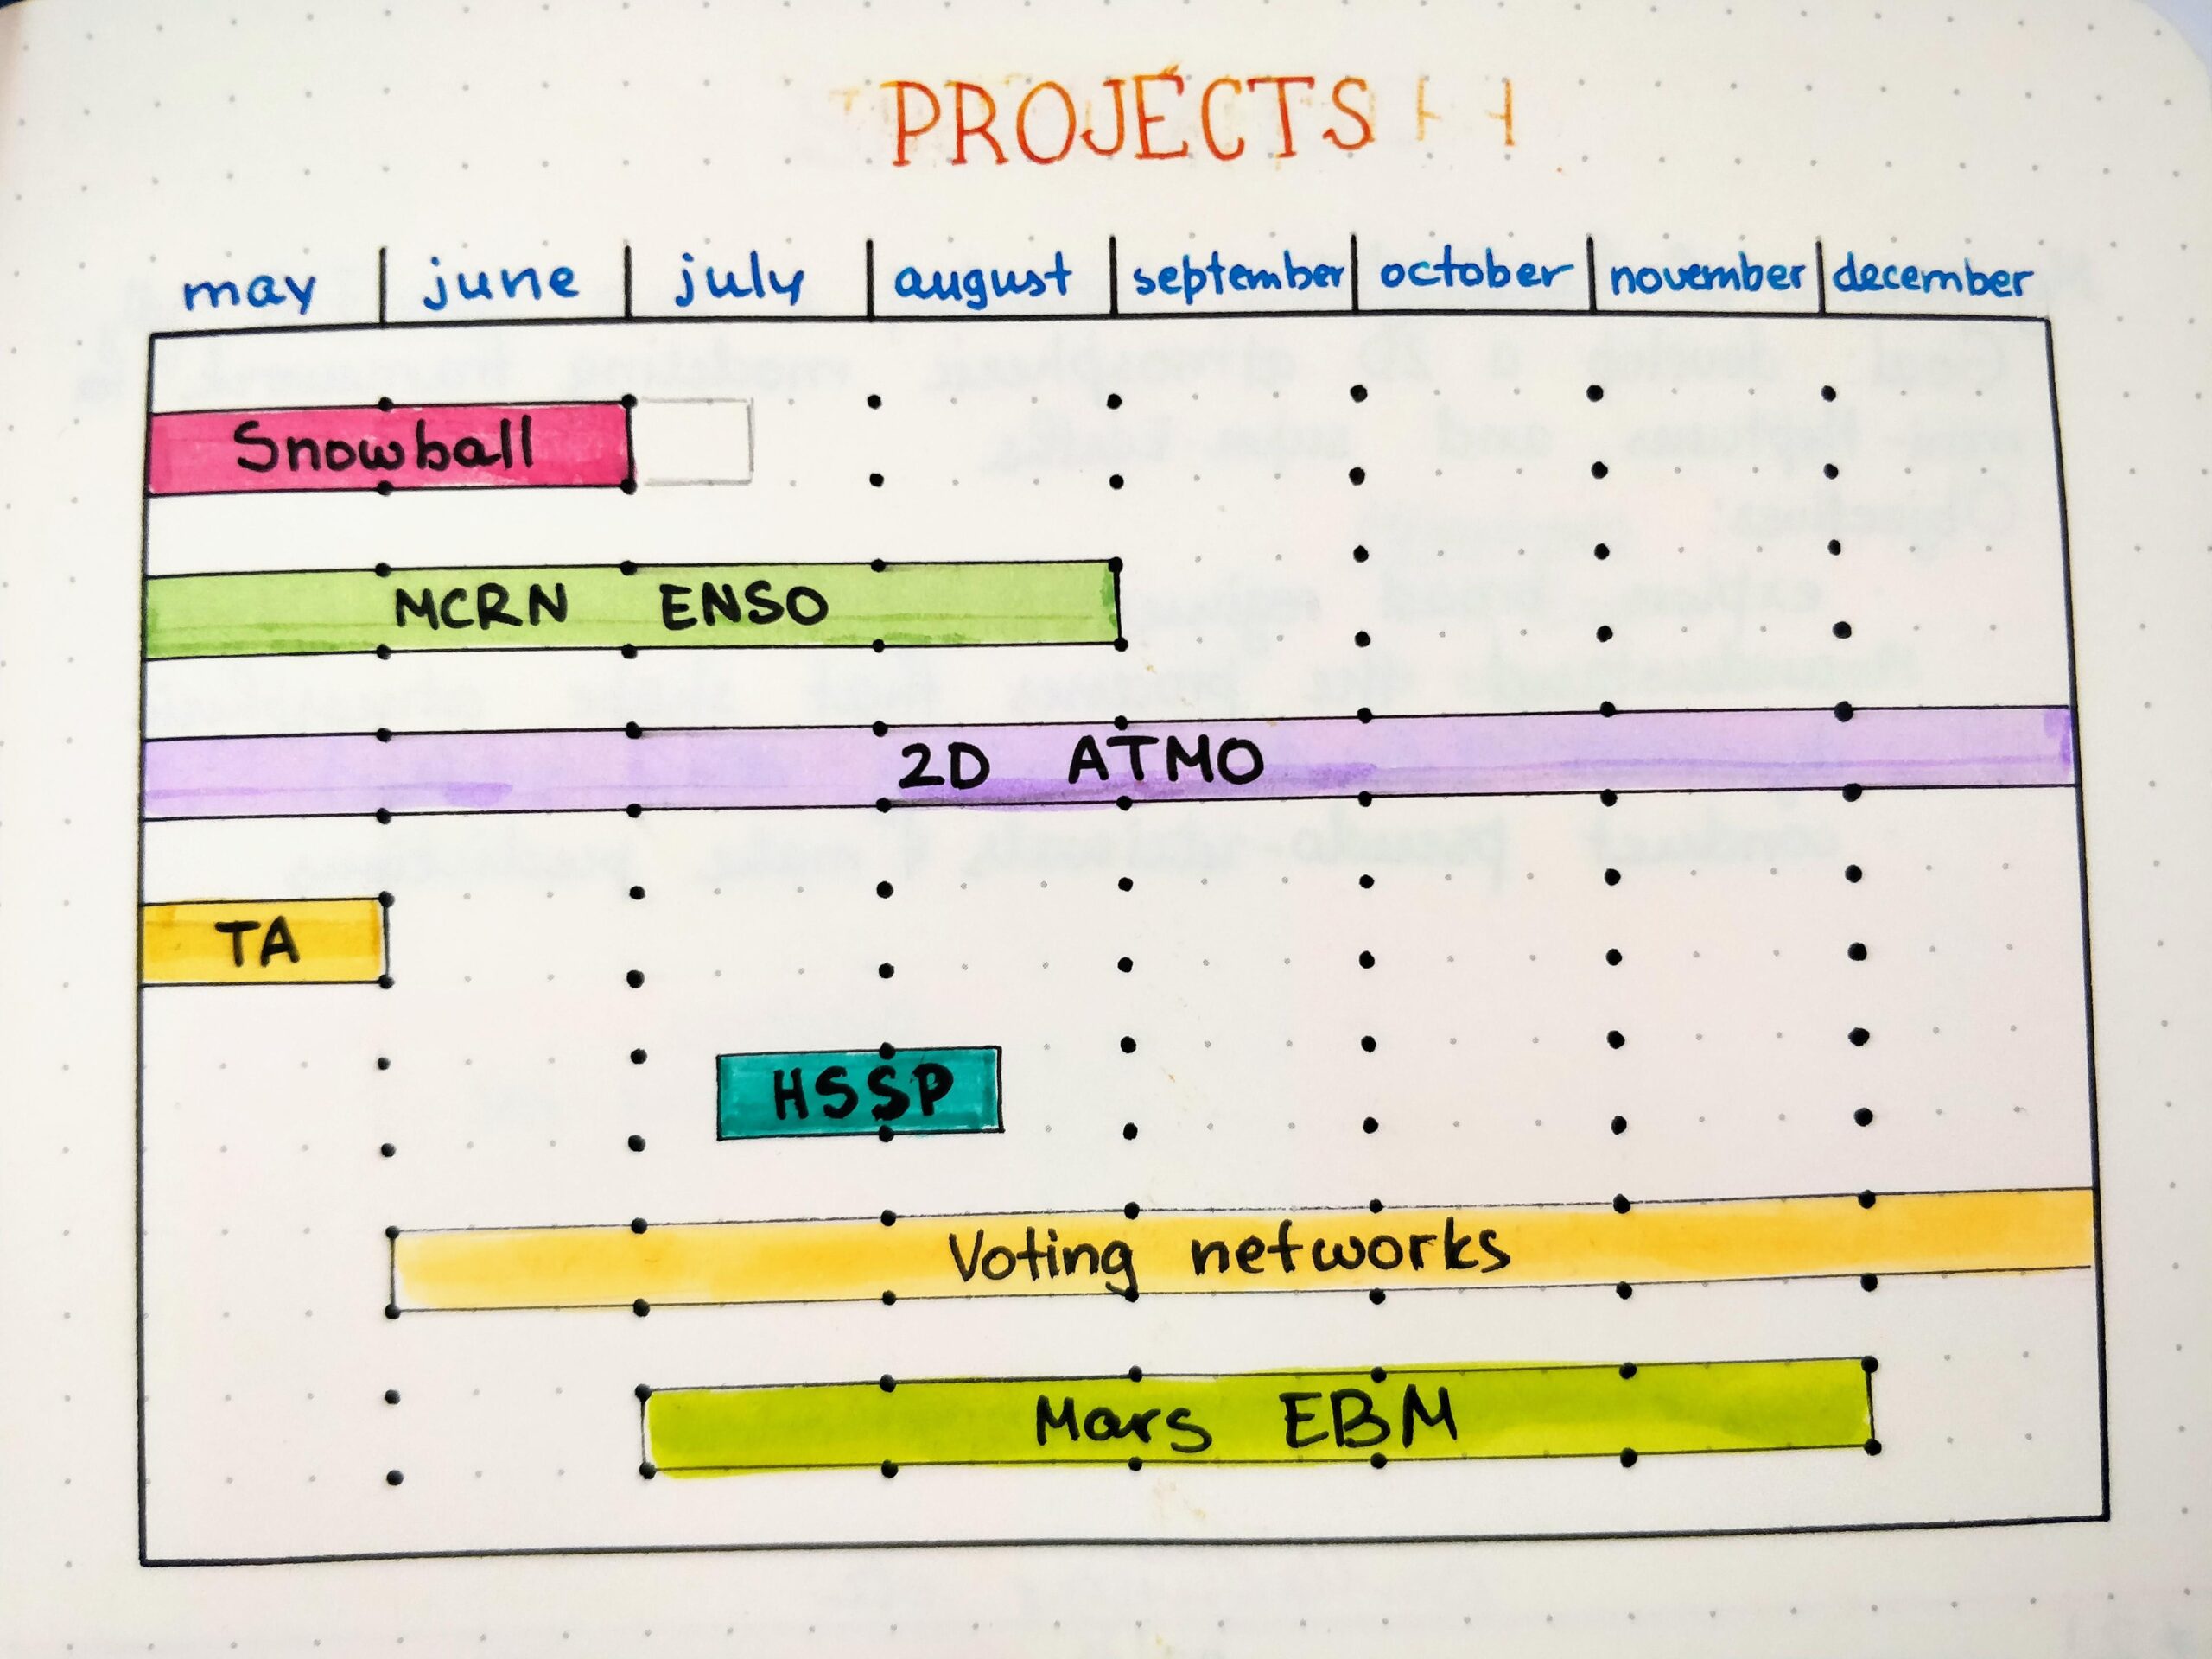 PROJECTS
may june july august september october november december
Snowball
MCRN ENSO
2D ATMO
TA
HSSP
Voting networks
Mars EBM